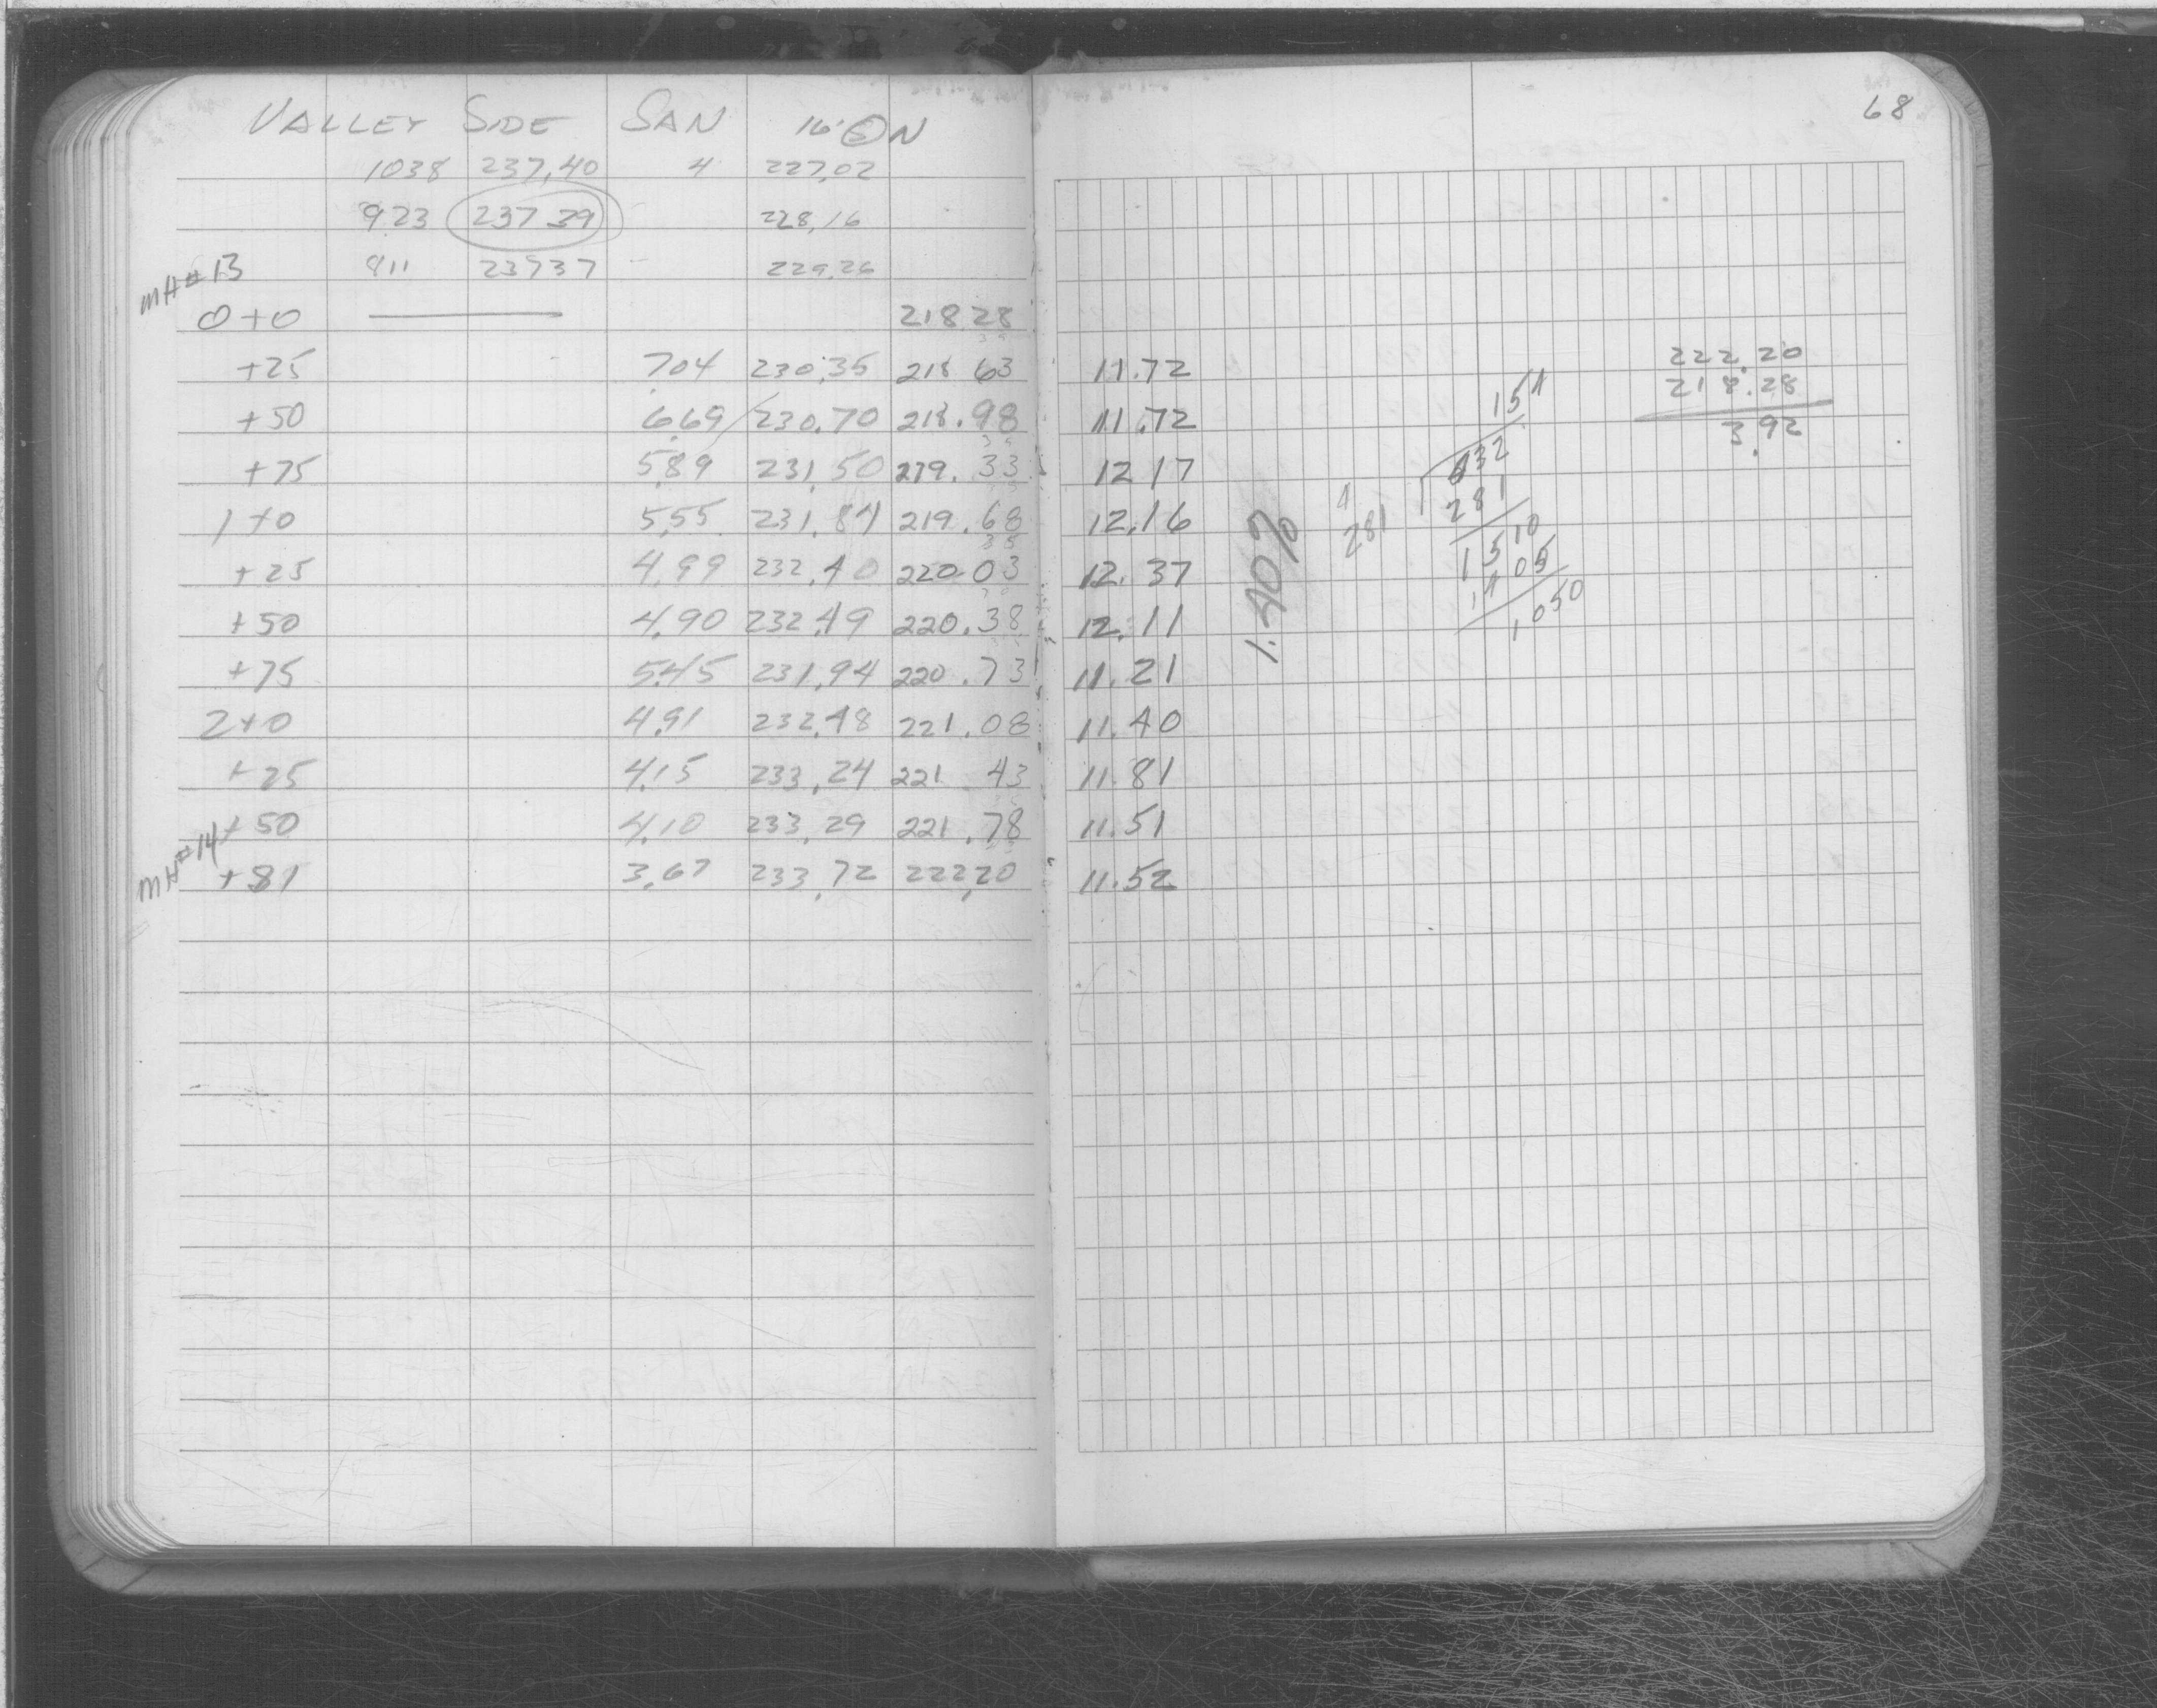 VALLEY SIDE SAN 16' S N
68
1038 237.40 4 227.02
923 237 39 228.16
MH#13 811 23737 229.26
0+0 218 28
+25 704 230.35 218 63 11.72
+50 6.69 230.70 218.98 11.72
+75 5.89 231.50 219.33 12 17
1+0 5.55 231.84 219.68 12.16
+25 4.99 232.40 220.03 12.37
+50 4.90 232.49 220.38 12.11
+75 5.45 231.94 220.73 11.21
2+0 4.91 232.48 221.08 11.40
+25 4.15 233.24 221 43 11.81
+50 4.10 233.29 221.78 11.51
MH#14 +81 3.67 233.72 222.20 11.52
222.20
218.28
3.92
1.40%
4
281
154
432
281
1510
1405
1050